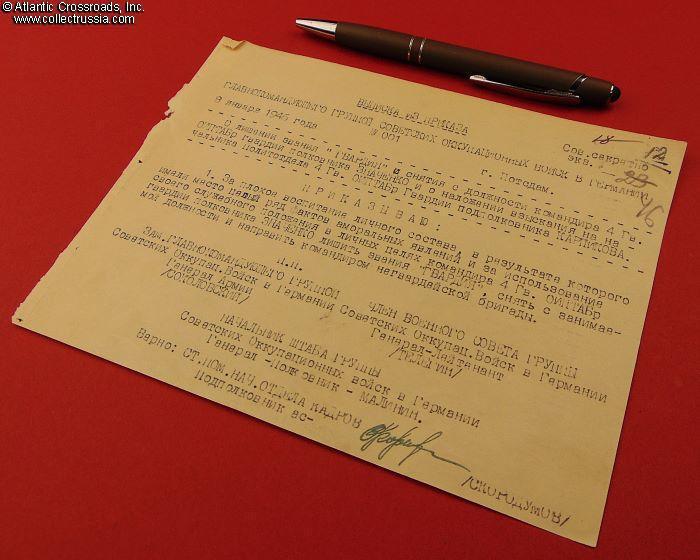 © Atlantic Crossroads, Inc.
www.collectrussia.com
ВЫПИСКА ИЗ ПРИКАЗА
ГЛАВНОКОМАНДУЮЩЕГО ГРУППОЙ СОВЕТСКИХ ОККУПАЦИОННЫХ ВОЙСК В ГЕРМАНИИ
Сов.секретно
экз.
12
16
9 января 1946 года
№ 001
г. Потсдам.
О лишении звания "ГВАРДИИ" и снятия с должности командира 4 Гв.
ОИПТАБр Гвардии полковника ЗНАЧЕНКО и о наложении взыскания на на-
чальника Политотдела 4 Гв. ОИПТАБр Гвардии подполковника КАРПИКОВА.
ПРИКАЗЫВАЮ:
1. За плохое воспитания личного состава, в результате которого
имели место целый ряд фактов аморальных явлений и за использование
своего служебного положения в личных целях командира 4 Гв. ОИПТАБр
Гвардии полковника ЗНАЧЕНКО лишить звания "ГВАРДИИ", снять с занимае-
мой должности и направить командиром негвардейской бригады.
П.П.
ЗАМ.ГЛАВНОКОМАНДУЮЩЕГО ГРУППОЙ
Советских Оккупац.Войск в Германии
Генерал Армии
/СОКОЛОВСКИЙ/
ЧЛЕН ВОЕННОГО СОВЕТА ГРУППЫ
Советских Оккупац.Войск в Германии
Генерал-Лейтенант
/ТЕЛЕГИН/
НАЧАЛЬНИК ШТАБА ГРУППЫ
Советских Оккупационных войск в Германии
Генерал-Полковник - МАЛИНИН.
Верно: СТ.ПОМ.НАЧ.ОТДЕЛА КАДРОВ
Подполковник ас-
/СКОРОДУМОВ/